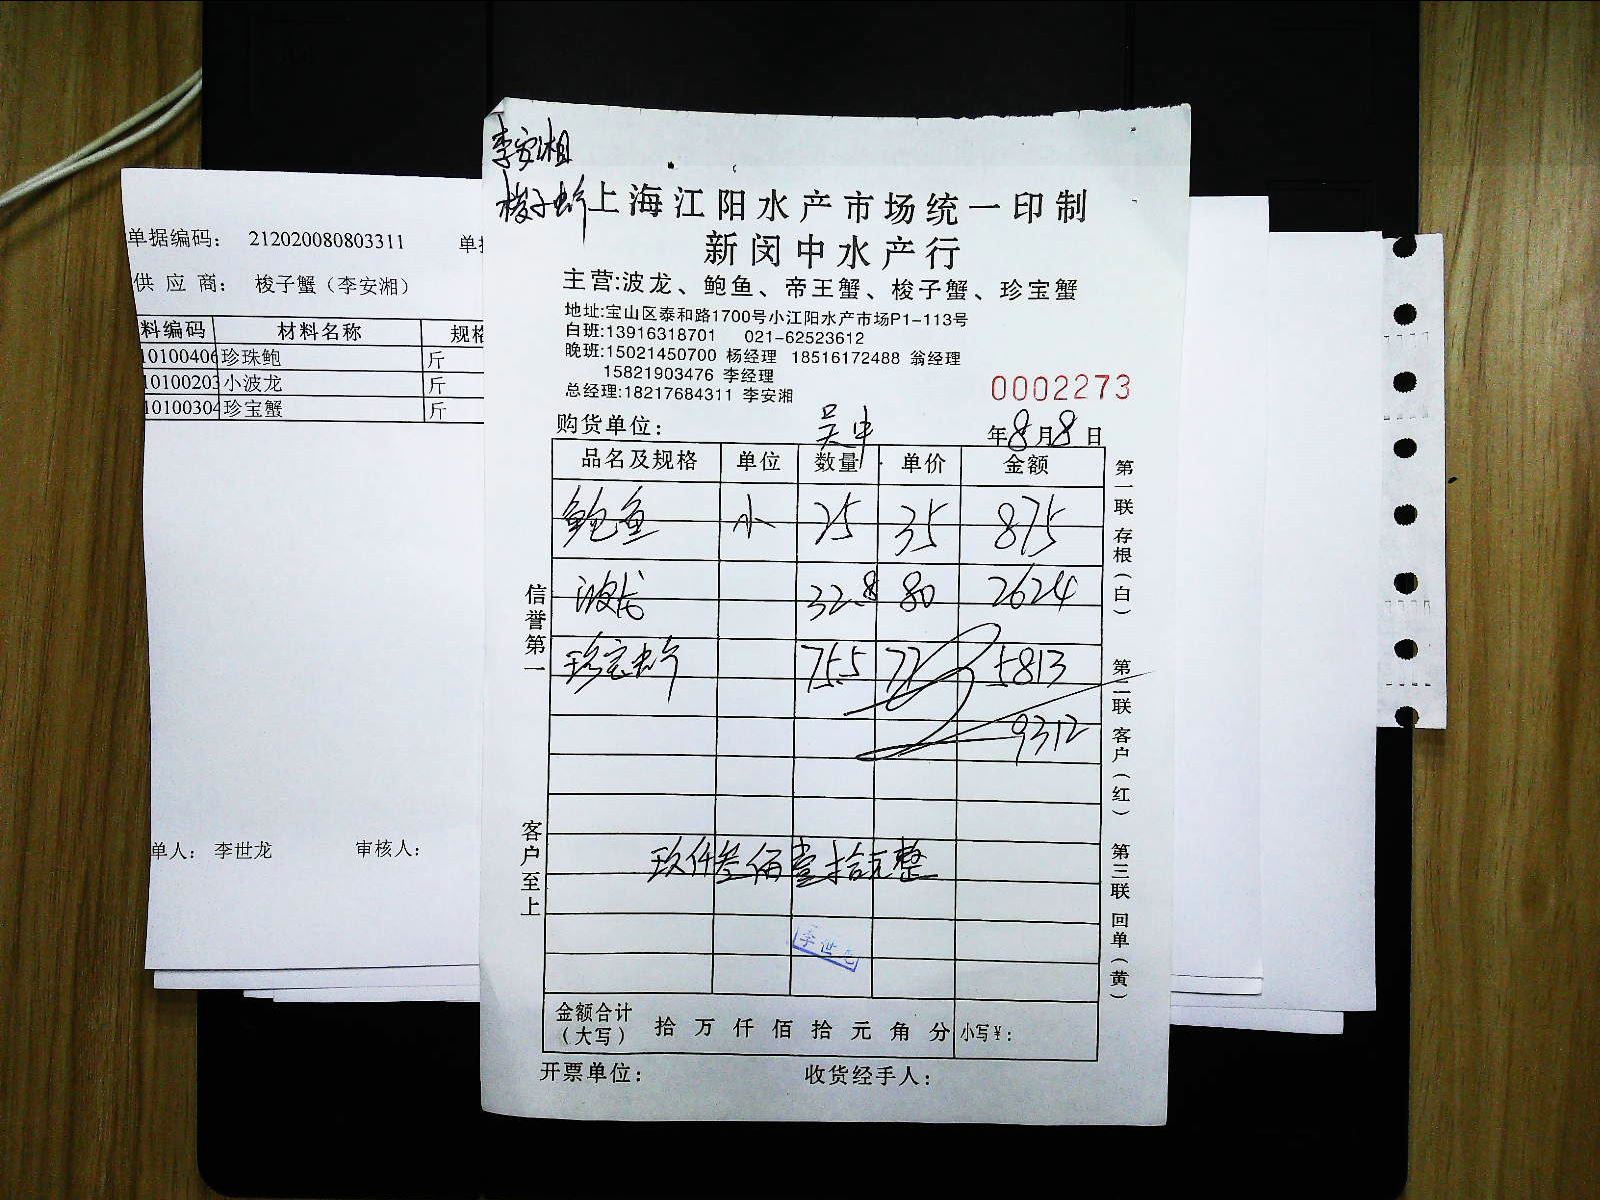 李安湘
梭子蚧
上海江阳水产市场统一印制
新闵中水产行
主营:波龙、鲍鱼、帝王蟹、梭子蟹、珍宝蟹
地址:宝山区泰和路1700号小江阳水产市场P1-113号
白班:13916318701 021-62523612
晚班:15021450700 杨经理 18516172488 翁经理
15821903476 李经理
总经理:18217684311 李安湘
0002273
购货单位: 吴中 年8月8日
品名及规格 单位 数量 单价 金额
鲍鱼 小 25 35 875
波龙 32.8 80 2624
珍宝蚧 75.5 77 5813
9312
玖仟叁佰壹拾元整
李世龙
金额合计(大写) 拾 万 仟 佰 拾 元 角 分 小写¥:
开票单位: 收货经手人:
信誉第一
客户至上
第一联 存根(白)
第二联 客户(红)
第三联 回单(黄)
单据编码: 212020080803311 单
供应商: 梭子蟹(李安湘)
料编码 材料名称 规格
10100406 珍珠鲍 斤
10100203 小波龙 斤
10100304 珍宝蟹 斤
单人: 李世龙 审核人: